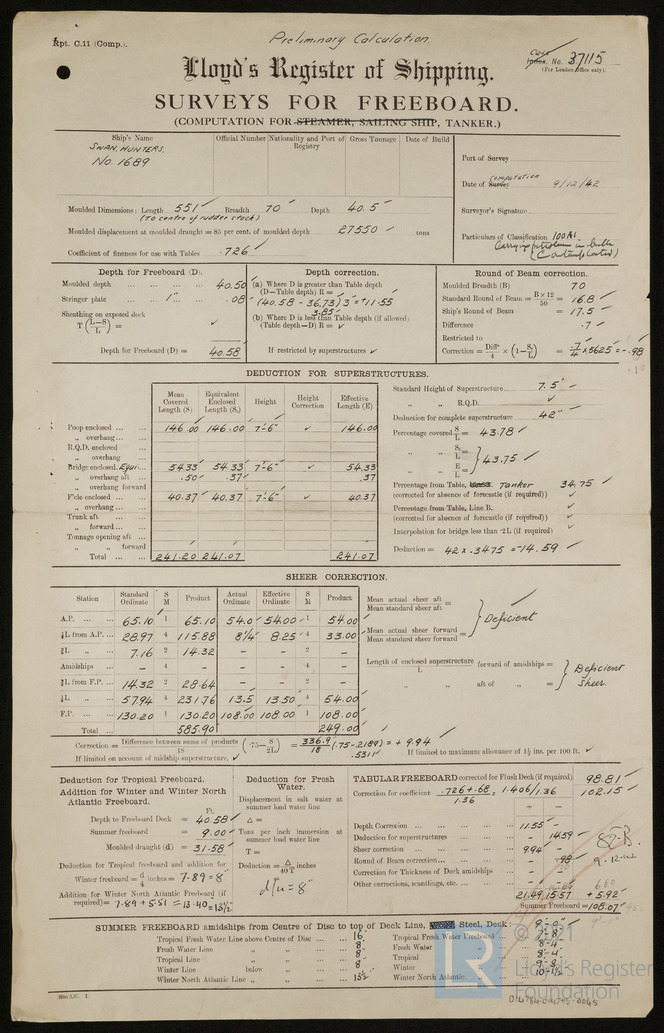 Preliminary Calculation.
Rpt. C.11 (Comp.).
Case
Index. No. 37115
(For London Office only).
Lloyd's Register of Shipping.
SURVEYS FOR FREEBOARD.
(COMPUTATION FOR STEAMER, SAILING SHIP, TANKER.)
Ship's Name
Official Number
Nationality and Port of Registry
Gross Tonnage
Date of Build
SWAN, HUNTERS,
No. 1689
Port of Survey
computation
Date of Survey 9/12/42
Surveyor's Signature
Particulars of Classification 100A1
Carrying petroleum in bulk
(Contemplated)
Moulded Dimensions: Length 551 Breadth 70 Depth 40.5
(To centre of rudder stock)
Moulded displacement at moulded draught = 85 per cent. of moulded depth 27550 tons
Coefficient of fineness for use with Tables .726
Depth for Freeboard (D).
Moulded depth ... 40.50
Stringer plate ... 1" ... .08
Sheathing on exposed deck
T(L-S/L) =
Depth for Freeboard (D) = 40.58
Depth correction.
(a) Where D is greater than Table depth
(D-Table depth) R =
(40.58 - 36.73) 3 = 11.55
3.85
(b) Where D is less than Table depth (if allowed)
(Table depth-D) R =
If restricted by superstructures
Round of Beam correction.
Moulded Breadth (B) 70
Standard Round of Beam = B×12/50 = 16.8
Ship's Round of Beam = 17.5
Difference .7
Restricted to
Correction = Diff/4 × (1-S₁/L) = .7/4 × 5625 = -.98
DEDUCTION FOR SUPERSTRUCTURES.
Mean Covered Length (S)
Equivalent Enclosed Length (S₁)
Height
Height Correction
Effective Length (E)
Poop enclosed ... 146.00 146.00 7'-6" 146.00
„ overhang ...
R.Q.D. enclosed
„ overhang
Bridge enclosed Equi. 54.33 54.33 7'-6" 54.33
„ overhang aft .50 .37 .37
„ overhang forward
F'cle enclosed ... 40.37 40.37 7'-6" 40.37
„ overhang ...
Trunk aft
„ forward ...
Tonnage opening aft
„ „ forward
Total ... 241.20 241.07 241.07
Standard Height of Superstructure 7.5'
„ „ R.Q.D.
Deduction for complete superstructure 42"
Percentage covered S/L = 43.78
„ S₁/L =
„ E/L = } 43.75
Percentage from Table, Tanker 34.75
(corrected for absence of forecastle (if required))
Percentage from Table, Line B.
(corrected for absence of forecastle (if required))
Interpolation for bridge less than ·2L (if required)
Deduction = 42 x .3475 = 14.59
SHEER CORRECTION.
Station
Standard Ordinate
S M
Product
Actual Ordinate
Effective Ordinate
S M
Product
A.P. ... 65.10 1 65.10 54.0 54.00 1 54.00
⅙L from A.P. ... 28.97 4 115.88 8¼ 8.25 4 33.00
⅓L „ ... 7.16 2 14.32 - - 2 -
Amidships ... - 4 - - - 4 -
⅓L from F.P. ... 14.32 2 28.64 - - 2 -
⅙L „ ... 57.94 4 231.76 13.5 13.50 4 54.00
F.P. ... 130.20 1 130.20 108.00 108.00 1 108.00
Total ... 585.90 249.00
Mean actual sheer aft
Mean standard sheer aft =
Mean actual sheer forward
Mean standard sheer forward =
} Deficient
Length of enclosed superstructure forward of amidships =
L
„ aft of „ =
} Deficient Sheer
Correction = Difference between sums of products/18 (·75-S/2L) = 336.9/18 (.75-.2189) = + 9.94
.5311
If limited on account of midship superstructure.
If limited to maximum allowance of 1½ ins. per 100 ft.
Deduction for Tropical Freeboard.
Addition for Winter and Winter North Atlantic Freeboard.
Ft.
Depth to Freeboard Deck = 40.58
Summer freeboard = 9.00
Moulded draught (d) = 31.58
Deduction for Tropical freeboard and addition for
Winter freeboard = d/4 inches = 7.89 = 8"
Addition for Winter North Atlantic Freeboard (if required) = 7.89 + 5.51 = 13.40 = 13½"
Deduction for Fresh Water.
Displacement in salt water at summer load water line
Δ =
Tons per inch immersion at summer load water line
T =
Deduction = Δ/40T inches
8"
TABULAR FREEBOARD corrected for Flush Deck (if required) 98.81
Correction for coefficient .726+.68/1.36 = 1.406/1.36 102.15
+ -
Depth Correction ... 11.55 -
Deduction for superstructures ... - 14.59
Sheer correction ... 9.94 -
Round of Beam correction ... - .98
Correction for Thickness of Deck amidships - -
Other corrections, scantlings, etc. ... - -
21.49 15.57 + 5.92
Summer Freeboard = 108.07
9.12.42
SUMMER FREEBOARD amidships from Centre of Disc to top of Deck Line, Steel, Deck: 9'-0"
Tropical Fresh Water Line above Centre of Disc ... 16
Fresh Water Line „ „ ... 8
Tropical Line „ „ ... 8
Winter Line below „ ... 8
Winter North Atlantic Line „ „ ... 13½
Tropical Fresh Water Freeboard ... 7'-8"
Fresh Water „ 8'-4
Tropical „ 8'-4
Winter „ 9'-8
Winter North Atlantic „ 10'-1½
© 2021
Lloyd's Register
Foundation
LR